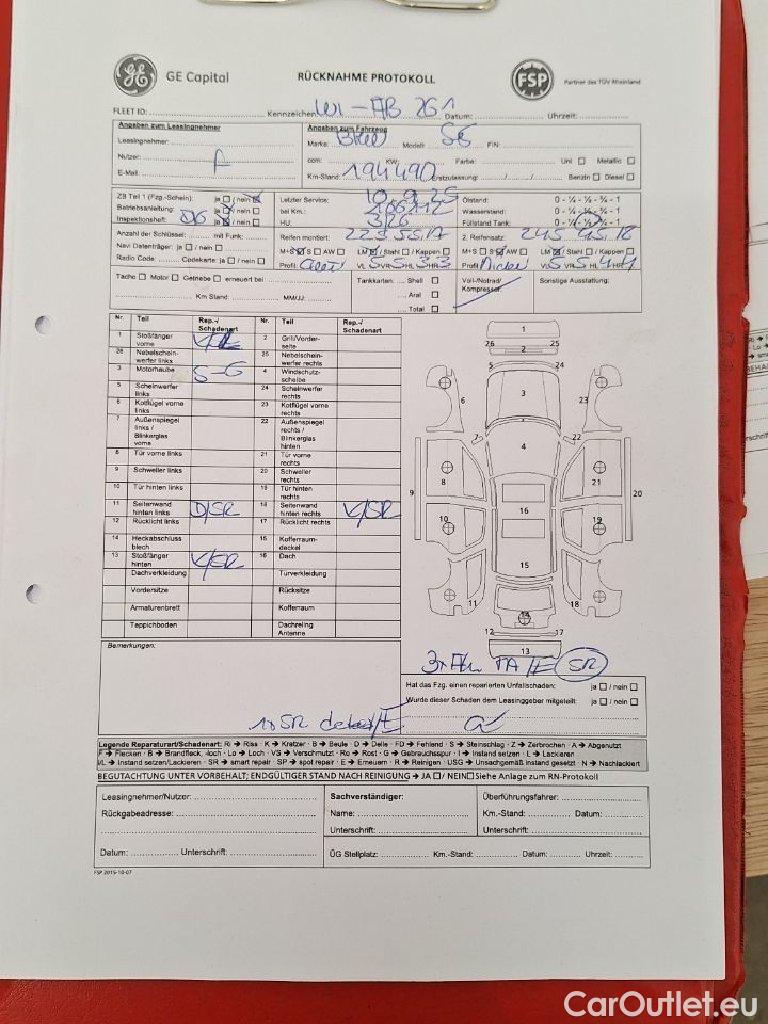 GE GE Capital RÜCKNAHME PROTOKOLL FSP Partner des TÜV Rheinland
FLEET ID: Kennzeichen: WI-AB 261 Datum: Uhrzeit:
Angaben zum Leasingnehmer Angaben zum Fahrzeug
Leasingnehmer: Marke: Modell: FIN:
Nutzer: ccm: KW: Farbe: Uni Metallic
E-Mail: Km-Stand: 194490 Erstzulassung: / / Benzin Diesel
ZB Teil 1 (Fzg.-Schein): ja / nein Letzter Service: 10.9.25 Ölstand: 0 - ¼ - ½ - ¾ - 1
Betriebsanleitung: ja / nein bei Km.: Wasserstand: 0 - ¼ - ½ - ¾ - 1
Inspektionsheft: ja / nein HU: 3/26 Füllstand Tank: 0 - ¼ - ½ - ¾ - 1
Anzahl der Schlüssel: mit Funk: Reifen montiert: 225 55 17 2. Reifensatz: 245 45 18
Navi Datenträger: ja / nein M+S S AW LM / Stahl / Kappen M+S S AW LM / Stahl / Kappen
Radio Code: Codekarte: ja / nein Profil VL 5 VR 5 HL 3 HR 3 Profil VL 5 VR 5 HL 4 HR 4
Tacho Motor Getriebe erneuert bei Tankkarten: Shell Voll-/Notrad/ Sonstige Ausstattung:
Kompressor:
Km Stand: MM/JJ: Aral
Total
Nr. Teil Rep.-/ Schadenart Nr. Teil Rep.-/ Schadenart
1 Stoßfänger vorne 2 Grill/Vorderseite
26 Nebelscheinwerfer links 25 Nebelscheinwerfer rechts
3 Motorhaube S-G 4 Windschutzscheibe
5 Scheinwerfer links 24 Scheinwerfer rechts
6 Kotflügel vorne links 23 Kotflügel vorne rechts
7 Außenspiegel links / Blinkerglas vorne 22 Außenspiegel rechts / Blinkerglas hinten
8 Tür vorne links 21 Tür vorne rechts
9 Schweller links 20 Schweller rechts
10 Tür hinten links 19 Tür hinten rechts
11 Seitenwand hinten links D/SR 18 Seitenwand hinten rechts K/SR
12 Rücklicht links 17 Rücklicht rechts
14 Heckabschlussblech 15 Kofferraumdeckel
13 Stoßfänger hinten K/SR 16 Dach
Dachverkleidung Türverkleidung
Vordersitze Rücksitze
Armaturenbrett Kofferraum
Teppichboden Dachreling Antenne
1
26 25
2
5 24
6 3 23
7 22
4
8 21
9 20
10 16 19
15
11 18
14
12 17
13
Bemerkungen:
SR
Hat das Fzg. einen reparierten Unfallschaden: ja / nein
Wurde dieser Schaden dem Leasinggeber mitgeteilt: ja / nein
1x SR
Legende Reparaturart/Schadenart: Ri → Riss · K → Kratzer · B → Beule · D → Delle · FD → Fehlend · S → Steinschlag · Z → Zerbrochen · A → Abgenutzt
F → Flecken · B → Brandfleck, -loch · Lo → Loch · VS → Verschmutzt · Ro → Rost · G → Gebrauchsspur · I → Instand setzen · L → Lackieren
I/L → Instand setzen/Lackieren · SR → smart repair · SP → spot repair · E → Erneuern · R → Reinigen · USG → Unsachgemäß instand gesetzt · N → Nachlackiert
BEGUTACHTUNG UNTER VORBEHALT; ENDGÜLTIGER STAND NACH REINIGUNG → JA / NEIN Siehe Anlage zum RN-Protokoll
Leasingnehmer/Nutzer: Sachverständiger: Überführungsfahrer:
Rückgabeadresse: Name: Km.-Stand: Datum:
Unterschrift: Unterschrift:
Datum: Unterschrift: ÜG Stellplatz: Km.-Stand: Datum: Uhrzeit:
FSP 2015-10-07
CarOutlet.eu